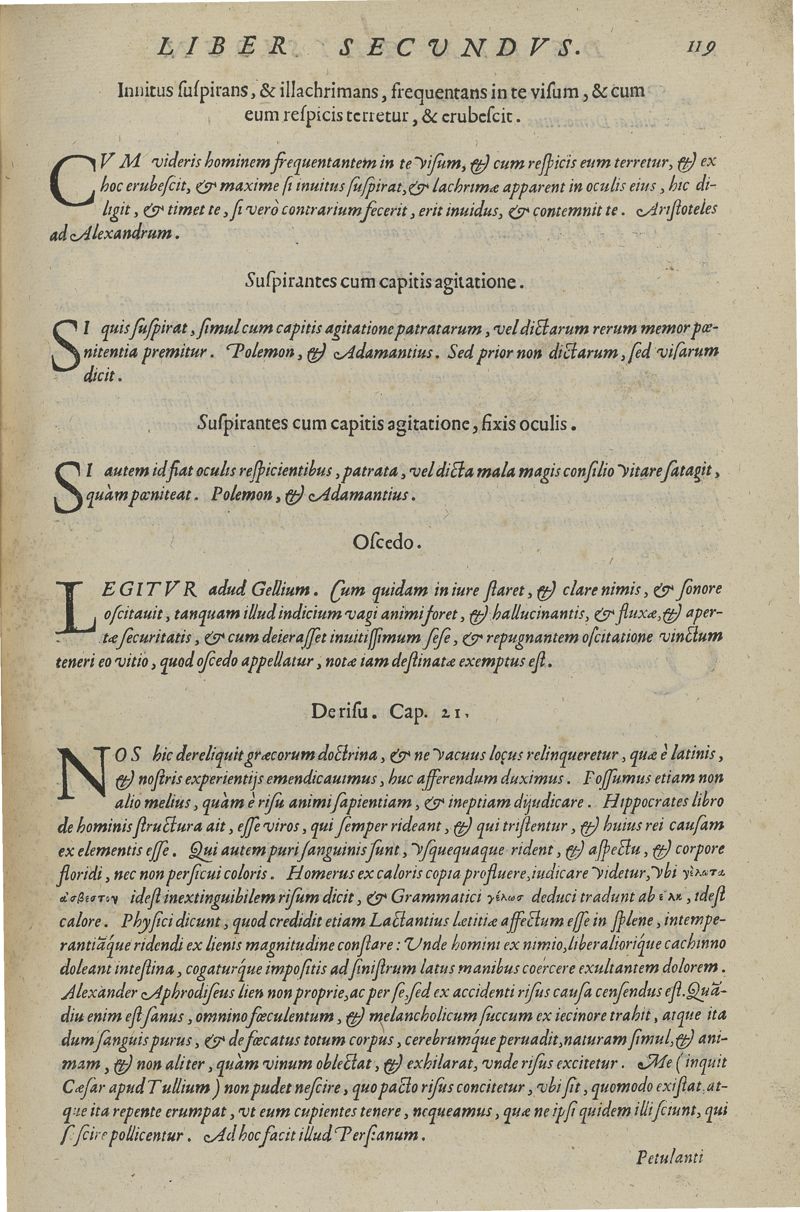 LIBER SECVNDVS. 119
Inuitus ſuſpirans, & illachrimans, frequentans in te viſum, & cum
eum reſpicis terretur, & erubeſcit.
CVM videris hominem frequentantem in te viſum, & cum reſpicis eum terretur, & ex
hoc erubeſcit, & maxime ſi inuitus ſuſpirat, & lachrimæ apparent in oculis eius, hic di-
ligit, & timet te, ſi verò contrarium fecerit, erit inuidus, & contemnit te. Ariſtoteles
ad Alexandrum.
Suſpirantes cum capitis agitatione.
SI quis ſuſpirat, ſimul cum capitis agitatione patratarum, vel dictarum rerum memor pœ-
nitentia premitur. Polemon, & Adamantius. Sed prior non dictarum, ſed viſarum
dicit.
Suſpirantes cum capitis agitatione, fixis oculis.
SI autem id fiat oculis reſpicientibus, patrata, vel dicta mala magis conſilio vitare ſatagit,
quàm pœniteat. Polemon, & Adamantius.
Oſcedo.
LEGITVR adud Gellium. Cum quidam in iure ſtaret, & clare nimis, & ſonore
oſcitauit, tanquam illud indicium vagi animi foret, & hallucinantis, & fluxæ, & aper-
tæ ſecuritatis, & cum deieraſſet inuitiſſimum ſeſe, & repugnantem oſcitatione vinctum
teneri eo vitio, quod oſcedo appellatur, notæ iam deſtinatæ exemptus eſt.
De riſu. Cap. 21.
NOS hic dereliquit græcorum doctrina, & ne vacuus locus relinqueretur, quæ è latinis,
& noſtris experientijs emendicauimus, huc afferendum duximus. Poſſumus etiam non
alio melius, quàm è riſu animi ſapientiam, & ineptiam dijudicare. Hippocrates libro
de hominis ſtructura ait, eſſe viros, qui ſemper rideant, & qui triſtentur, & huius rei cauſam
ex elementis eſſe. Qui autem puri ſanguinis ſunt, vſquequaque rident, & aſpectu, & corpore
floridi, nec non perſicui coloris. Homerus ex caloris copia profluere, iudicare videtur, vbi γέλωτα
ἀσβεστον ideſt inextinguibilem riſum dicit, & Grammatici γέλωσ deduci tradunt ab ideſt
calore. Phyſici dicunt, quod credidit etiam Lactantius lætitiæ affectum eſſe in ſplene, intempe-
rantiāque ridendi ex lienis magnitudine conſtare: Unde homini ex nimio, liberaliorique cachinno
doleant inteſtina, cogaturque impoſitis ad ſiniſtrum latus manibus coercere exultantem dolorem.
Alexander Aphrodiſeus lien non proprie, ac per ſe, ſed ex accidenti riſus cauſa cenſendus eſt. Quā-
diu enim eſt ſanus, omnino fœculentum, & melancholicum ſuccum ex iecinore trahit, atque ita
dum ſanguis purus, & defœcatus totum corpus, cerebrumque peruadit, naturam ſimul, & ani-
mam, & non aliter, quàm vinum oblectat, & exhilarat, vnde riſus excitetur. Me (inquit
Cæſar apud Tullium) non pudet neſcire, quo pacto riſus concitetur, vbi ſit, quomodo exiſtat, at-
que ita repente erumpat, vt eum cupientes tenere, nequeamus, quæ ne ipſi quidem illi ſciunt, qui
ſe ſcire pollicentur. Ad hoc facit illud Perſianum.
Petulanti